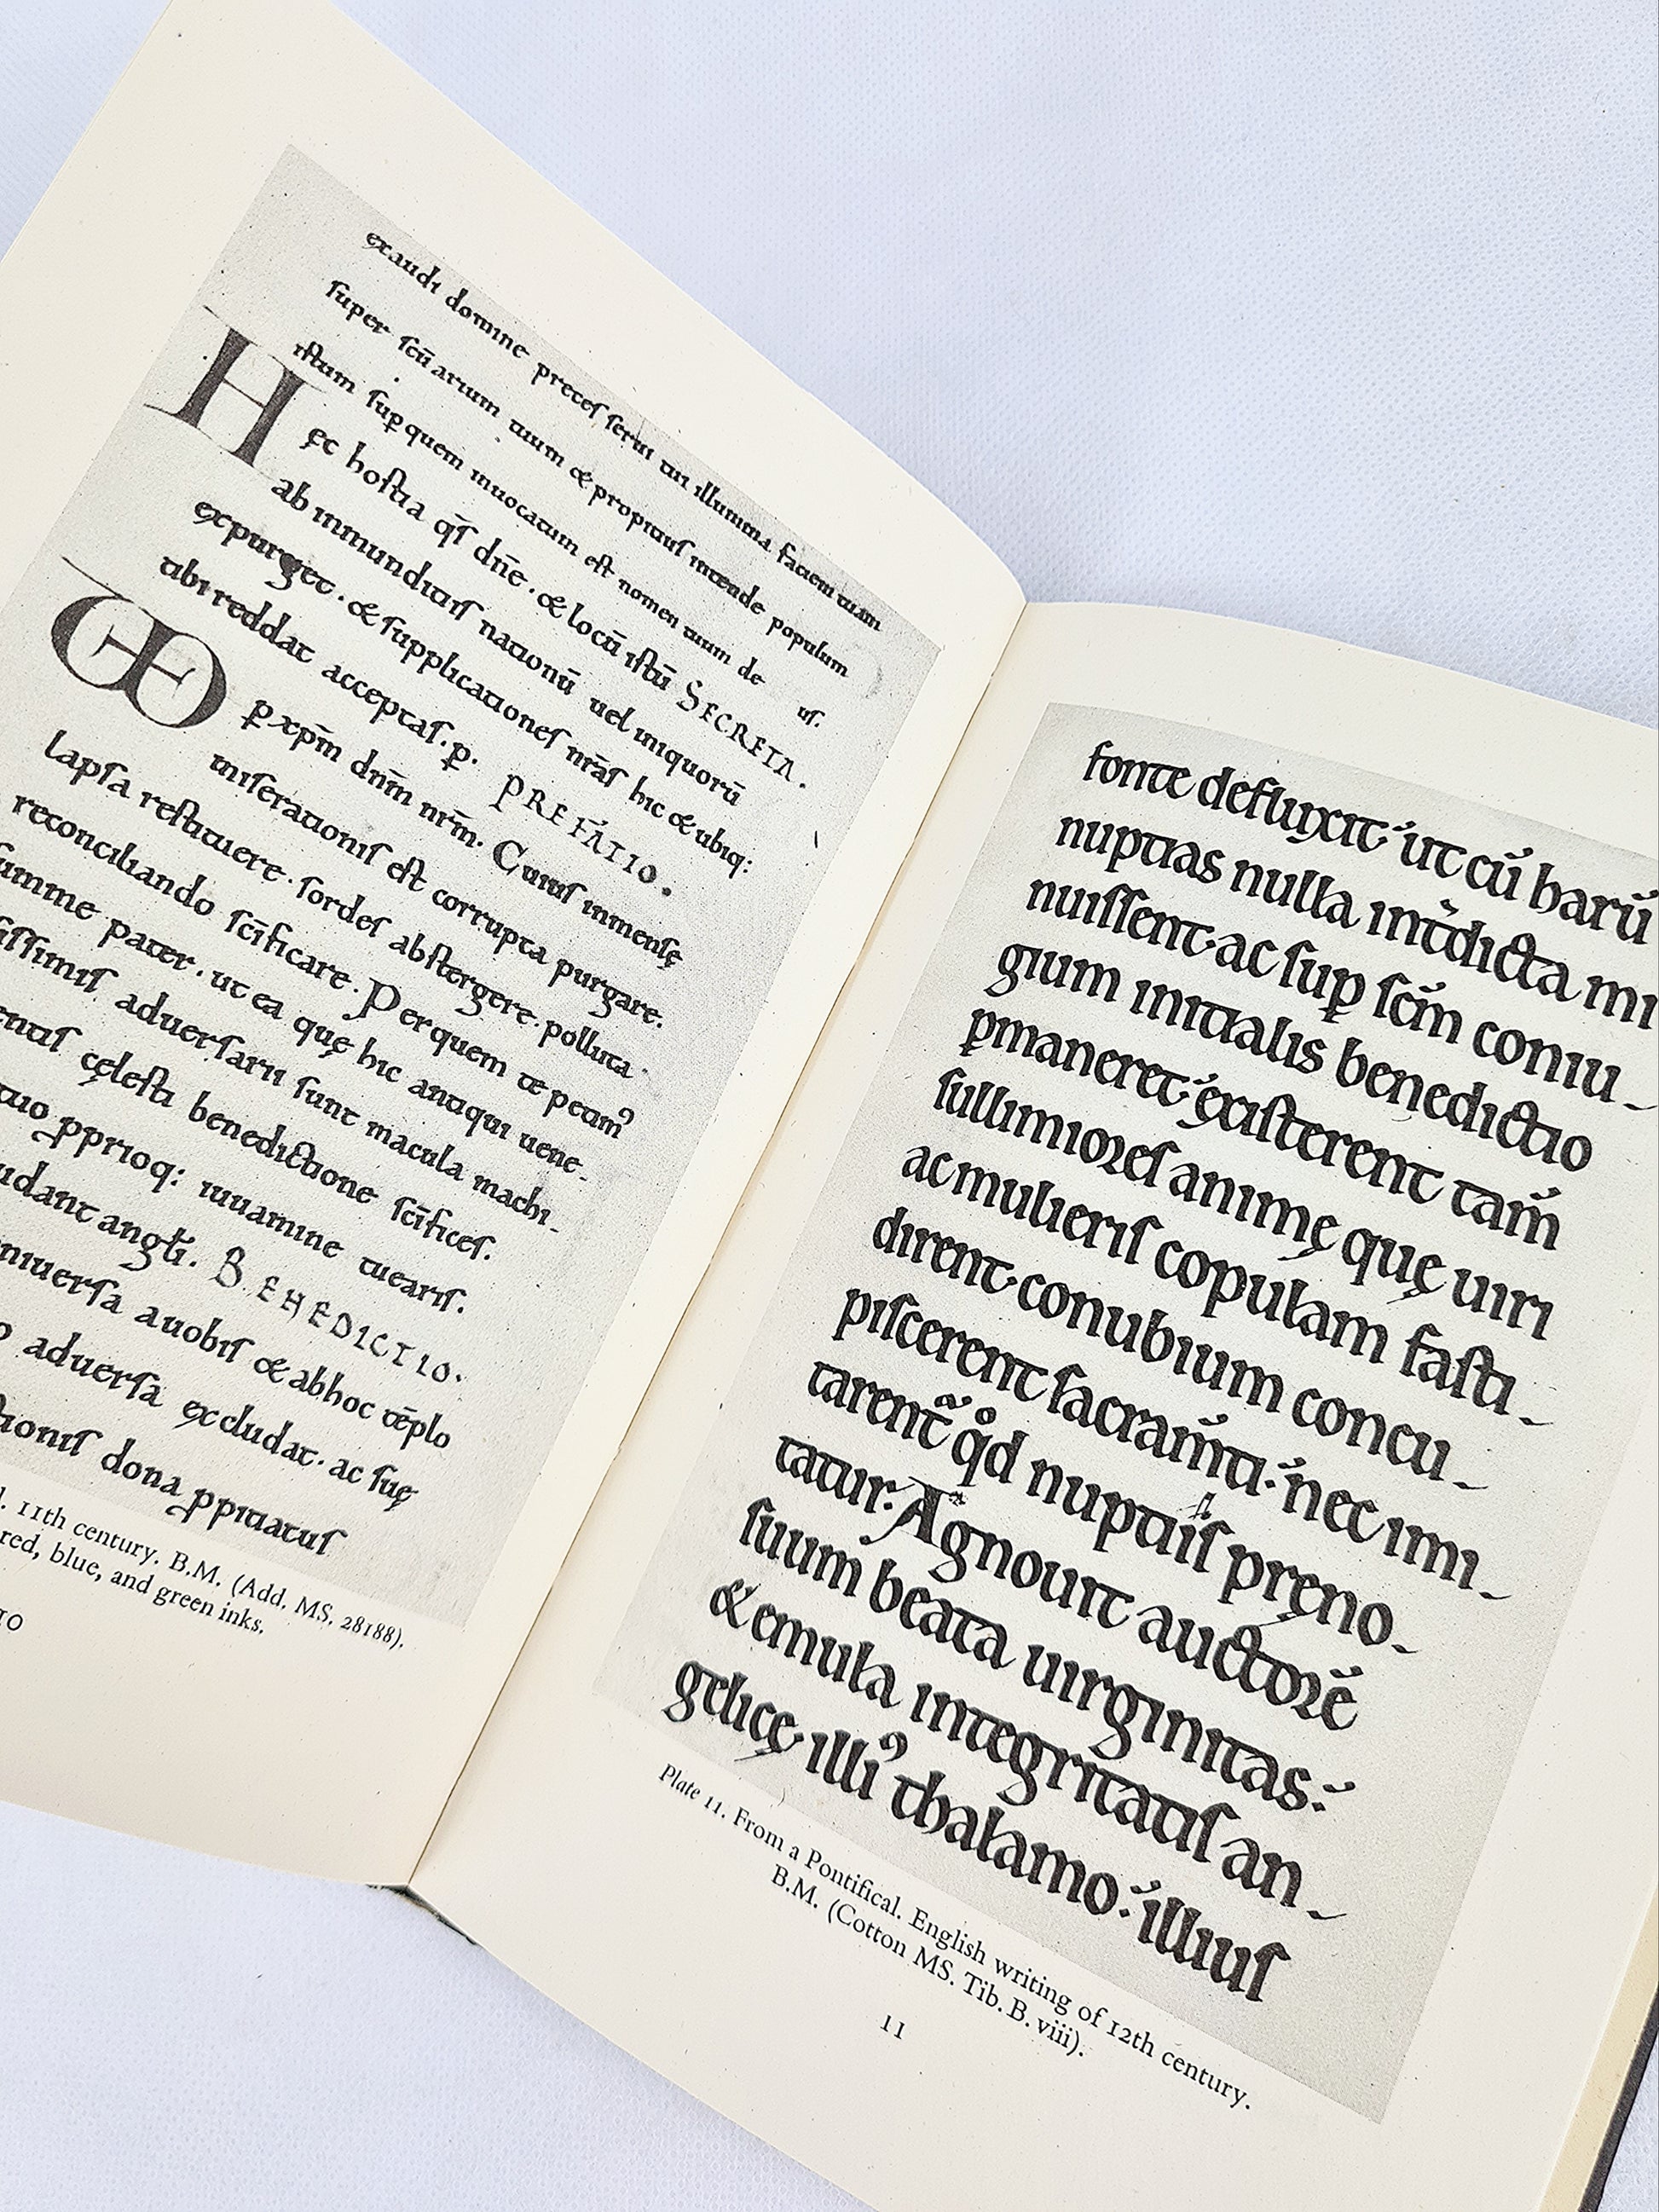 exaudi domine preceſ ſerui tui illumina faciem tuam
ſuper ſcūarium tuum & propitiuſ intende populum
iſtum ſup̱ quem inuocatum eſt nomen tuum de
uſ.
Hęc hoſtia qſ̄ dn̄e . & locū iſtū SECRETA .
ab inmunditiiſ nationū uel iniquorū
expurget . & ſupplicationeſ nr̄aſ hic & ubiq:
tibi reddat acceptaſ . p̱ . PREFATIO .
p̱ xp̄m dn̄m nr̄m . Cuiuſ inmenſę
miſerationiſ eſt corrupta purgare .
lapſa reſtituere . ſordeſ abſtergere . polluta
reconciliando ſcīficare . Per quem te petim⁹
ſumme pater . ut ea quę hic antiqui uene-
iſſimiſ aduerſarii ſunt macula machi-
entiſ cęleſti benedictione ſcīficeſ .
tuo ꝓprioq: iuuamine tueariſ .
udant angłi . BENEDICTIO .
niuerſa auobiſ & abhoc tēplo
o aduerſa excludat . ac ſuę
tioniſ dona ꝓpitiatuſ
11th century. B.M. (Add. MS. 28188).
red, blue, and green inks.
10
fonte defluxit. ut cū harū
nuptias nulla int̄dicta mi
nuiſſent. ac ſup̱ ſcm̄ coniu-
gium initialis benędictio
p̱maneret. exiſterent tam̄
ſullimioreſ animę quę uiri
ac mulieriſ copulam faſti-
dirent. conubium concu-
piſcerent ſacram̄ti. nec imi-
tarent̄ qd nuptiiſ pręno-
tatur. Agnouit auctorē
ſuum beata uirginitas.
& emula integritatiſ an-
gelicę. illi⁹ thalamo. illiuſ
Plate 11. From a Pontifical. English writing of 12th century.
B.M. (Cotton MS. Tib. B. viii).
11